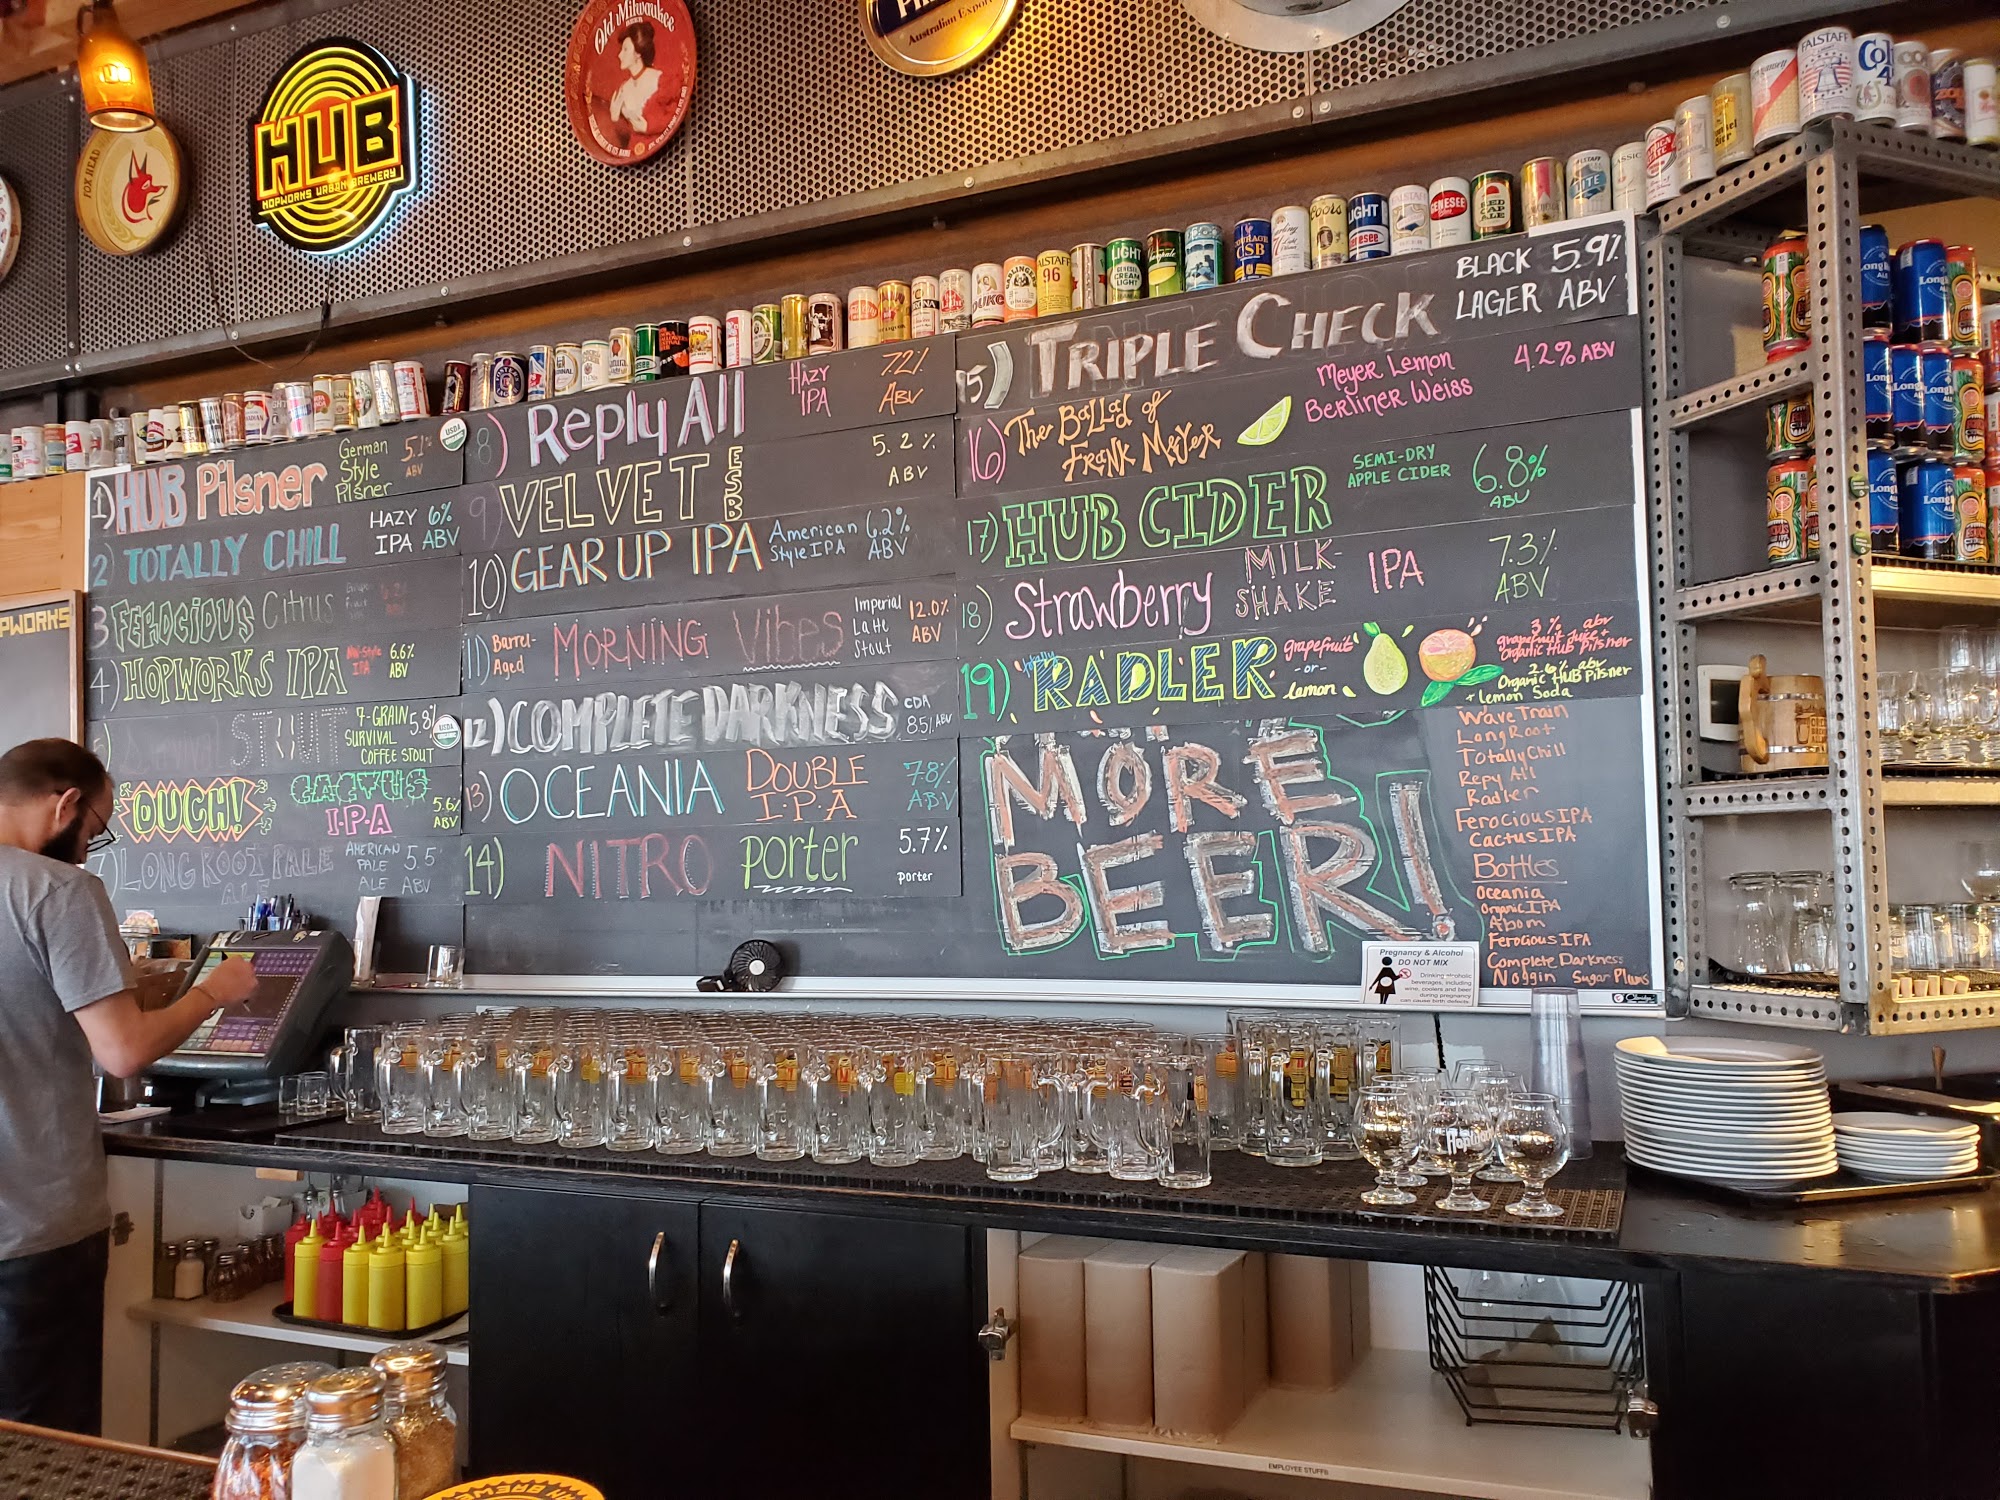 Old Milwaukee
BEER
Australian Export
FOX HEAD
HUB
HOPWORKS URBAN BREWERY
FALSTAFF
LIGHT
GENESEE
RED CAP ALE
COURAGE
CSB
Coors
LIGHT
GENESEE
CREAM
LIGHT
FALSTAFF
96
DUKE
PWORKS
1) HUB Pilsner
German
Style
Pilsner
5.1%
ABV
USDA
ORGANIC
2) TOTALLY CHILL
HAZY 6%
IPA ABV
3 FEROCIOUS Citrus
4) HOPWORKS IPA
IPA
6.6%
ABV
STOUT
7-GRAIN
SURVIVAL
COFFEE STOUT
5.8%
USDA
ORGANIC
OUCH!
CACTUS
I·P·A
5.6%
ABV
7) LONG ROOT PALE
ALE
AMERICAN
PALE
ALE
5.5
ABV
8) Reply All
HAZY
IPA
7.2%
ABV
9) VELVET ESB
5.2%
ABV
10) GEAR UP IPA
American
Style IPA
6.2%
ABV
11) Barrel-
Aged
MORNING Vibes
Imperial
Latte
Stout
12.0%
ABV
12) COMPLETE DARKNESS
CDA
8.5% ABV
13) OCEANIA
DOUBLE
I·P·A
7.8%
ABV
14) NITRO porter
5.7%
porter
15) TRIPLE CHECK
BLACK 5.9%
LAGER ABV
16) The Ballad of
Frank Meyer
Meyer Lemon
Berliner Weiss
4.2% ABV
17) HUB CIDER
SEMI-DRY
APPLE CIDER
6.8%
ABV
18) Strawberry
MILK-
SHAKE
IPA
7.3%
ABV
19) RADLER
grapefruit
-or-
lemon
3% abv
grapefruit Juice +
Organic Hub Pilsner
2.6% abv
Organic HUB Pilsner
+ lemon Soda
MORE
BEER!
Wave Train
Long Root
Totally Chill
Repy All
Radler
Ferocious IPA
Cactus IPA
Bottles
Oceania
Organic IPA
Abom
Ferocious IPA
Complete Darkness
Noggin Sugar Plums
Pregnancy & Alcohol
DO NOT MIX
Drinking alcoholic
beverages, including
wine, coolers and beer
during pregnancy
can cause birth defects.
EMPLOYEE STUFFS